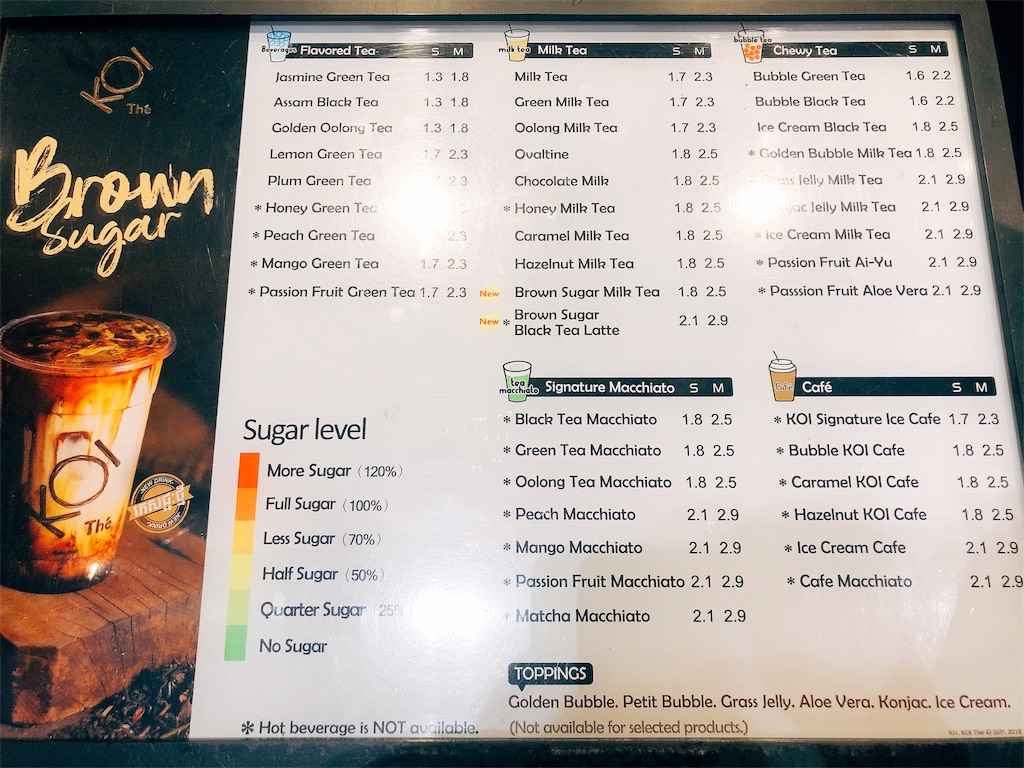 KOI
Thé
Brown
Sugar
KOI
Thé
NEW DRINK
NEW DRINK
Beverages Flavored Tea S M
Jasmine Green Tea 1.3 1.8
Assam Black Tea 1.3 1.8
Golden Oolong Tea 1.3 1.8
Lemon Green Tea 1.7 2.3
Plum Green Tea 2.3
* Honey Green Tea
* Peach Green Tea 2.3
* Mango Green Tea 1.7 2.3
* Passion Fruit Green Tea 1.7 2.3
Sugar level
More Sugar (120%)
Full Sugar (100%)
Less Sugar (70%)
Half Sugar (50%)
Quarter Sugar (25%
No Sugar
* Hot beverage is NOT available.
milk tea Milk Tea S M
Milk Tea 1.7 2.3
Green Milk Tea 1.7 2.3
Oolong Milk Tea 1.7 2.3
Ovaltine 1.8 2.5
Chocolate Milk 1.8 2.5
* Honey Milk Tea 1.8 2.5
Caramel Milk Tea 1.8 2.5
Hazelnut Milk Tea 1.8 2.5
New Brown Sugar Milk Tea 1.8 2.5
New * Brown Sugar
Black Tea Latte 2.1 2.9
tea macchiato Signature Macchiato S M
* Black Tea Macchiato 1.8 2.5
* Green Tea Macchiato 1.8 2.5
* Oolong Tea Macchiato 1.8 2.5
* Peach Macchiato 2.1 2.9
* Mango Macchiato 2.1 2.9
* Passion Fruit Macchiato 2.1 2.9
* Matcha Macchiato 2.1 2.9
bubble tea Chewy Tea S M
Bubble Green Tea 1.6 2.2
Bubble Black Tea 1.6 2.2
Ice Cream Black Tea 1.8 2.5
* Golden Bubble Milk Tea 1.8 2.5
Grass Jelly Milk Tea 2.1 2.9
Konjac Jelly Milk Tea 2.1 2.9
* Ice Cream Milk Tea 2.1 2.9
* Passion Fruit Ai-Yu 2.1 2.9
* Passsion Fruit Aloe Vera 2.1 2.9
Café Café S M
* KOI Signature Ice Cafe 1.7 2.3
* Bubble KOI Cafe 1.8 2.5
* Caramel KOI Cafe 1.8 2.5
* Hazelnut KOI Cafe 1.8 2.5
* Ice Cream Cafe 2.1 2.9
* Cafe Macchiato 2.1 2.9
TOPPINGS
Golden Bubble. Petit Bubble. Grass Jelly. Aloe Vera. Konjac. Ice Cream.
(Not available for selected products.)
KH. KOI Thé © SEP. 2018